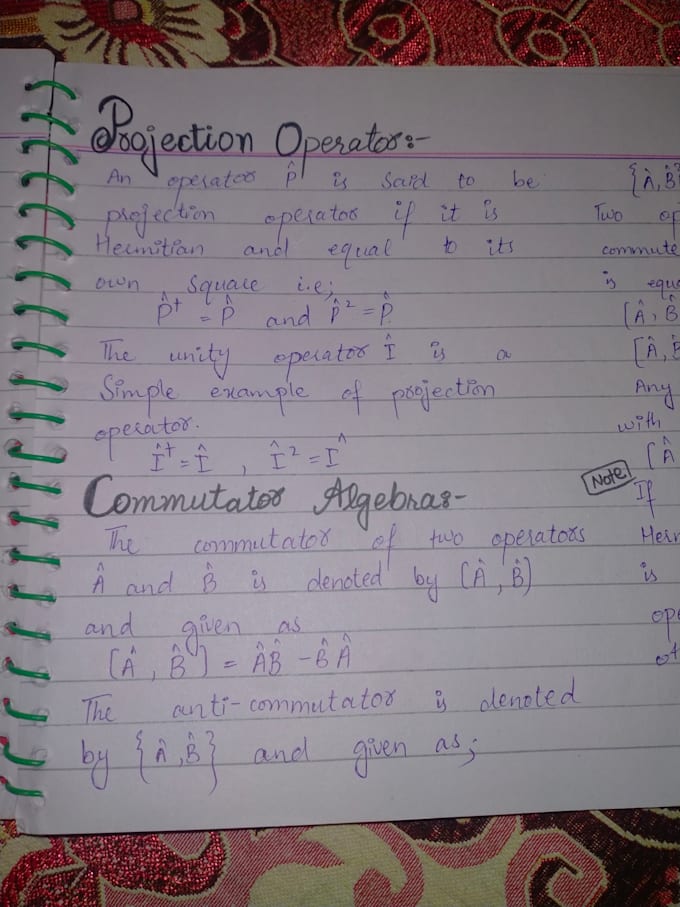 Projection Operator:-
An operator P̂ is said to be
projection operator if it is
Hermitian and equal to its
own square i.e;
P̂† = P̂ and P̂² = P̂
The unity operator Î is a
Simple example of projection
operator.
Î† = Î , Î² = Î
Commutator Algebra:-
The commutator of two operators
Â and B̂ is denoted by [Â , B̂]
and given as
[Â , B̂] = ÂB̂ - B̂Â
The anti-commutator is denoted
by {Â , B̂} and given as;
{Â, B̂
Two
commute
is
[Â, B̂
[Â,
Any
with
[Â
Note
If
is